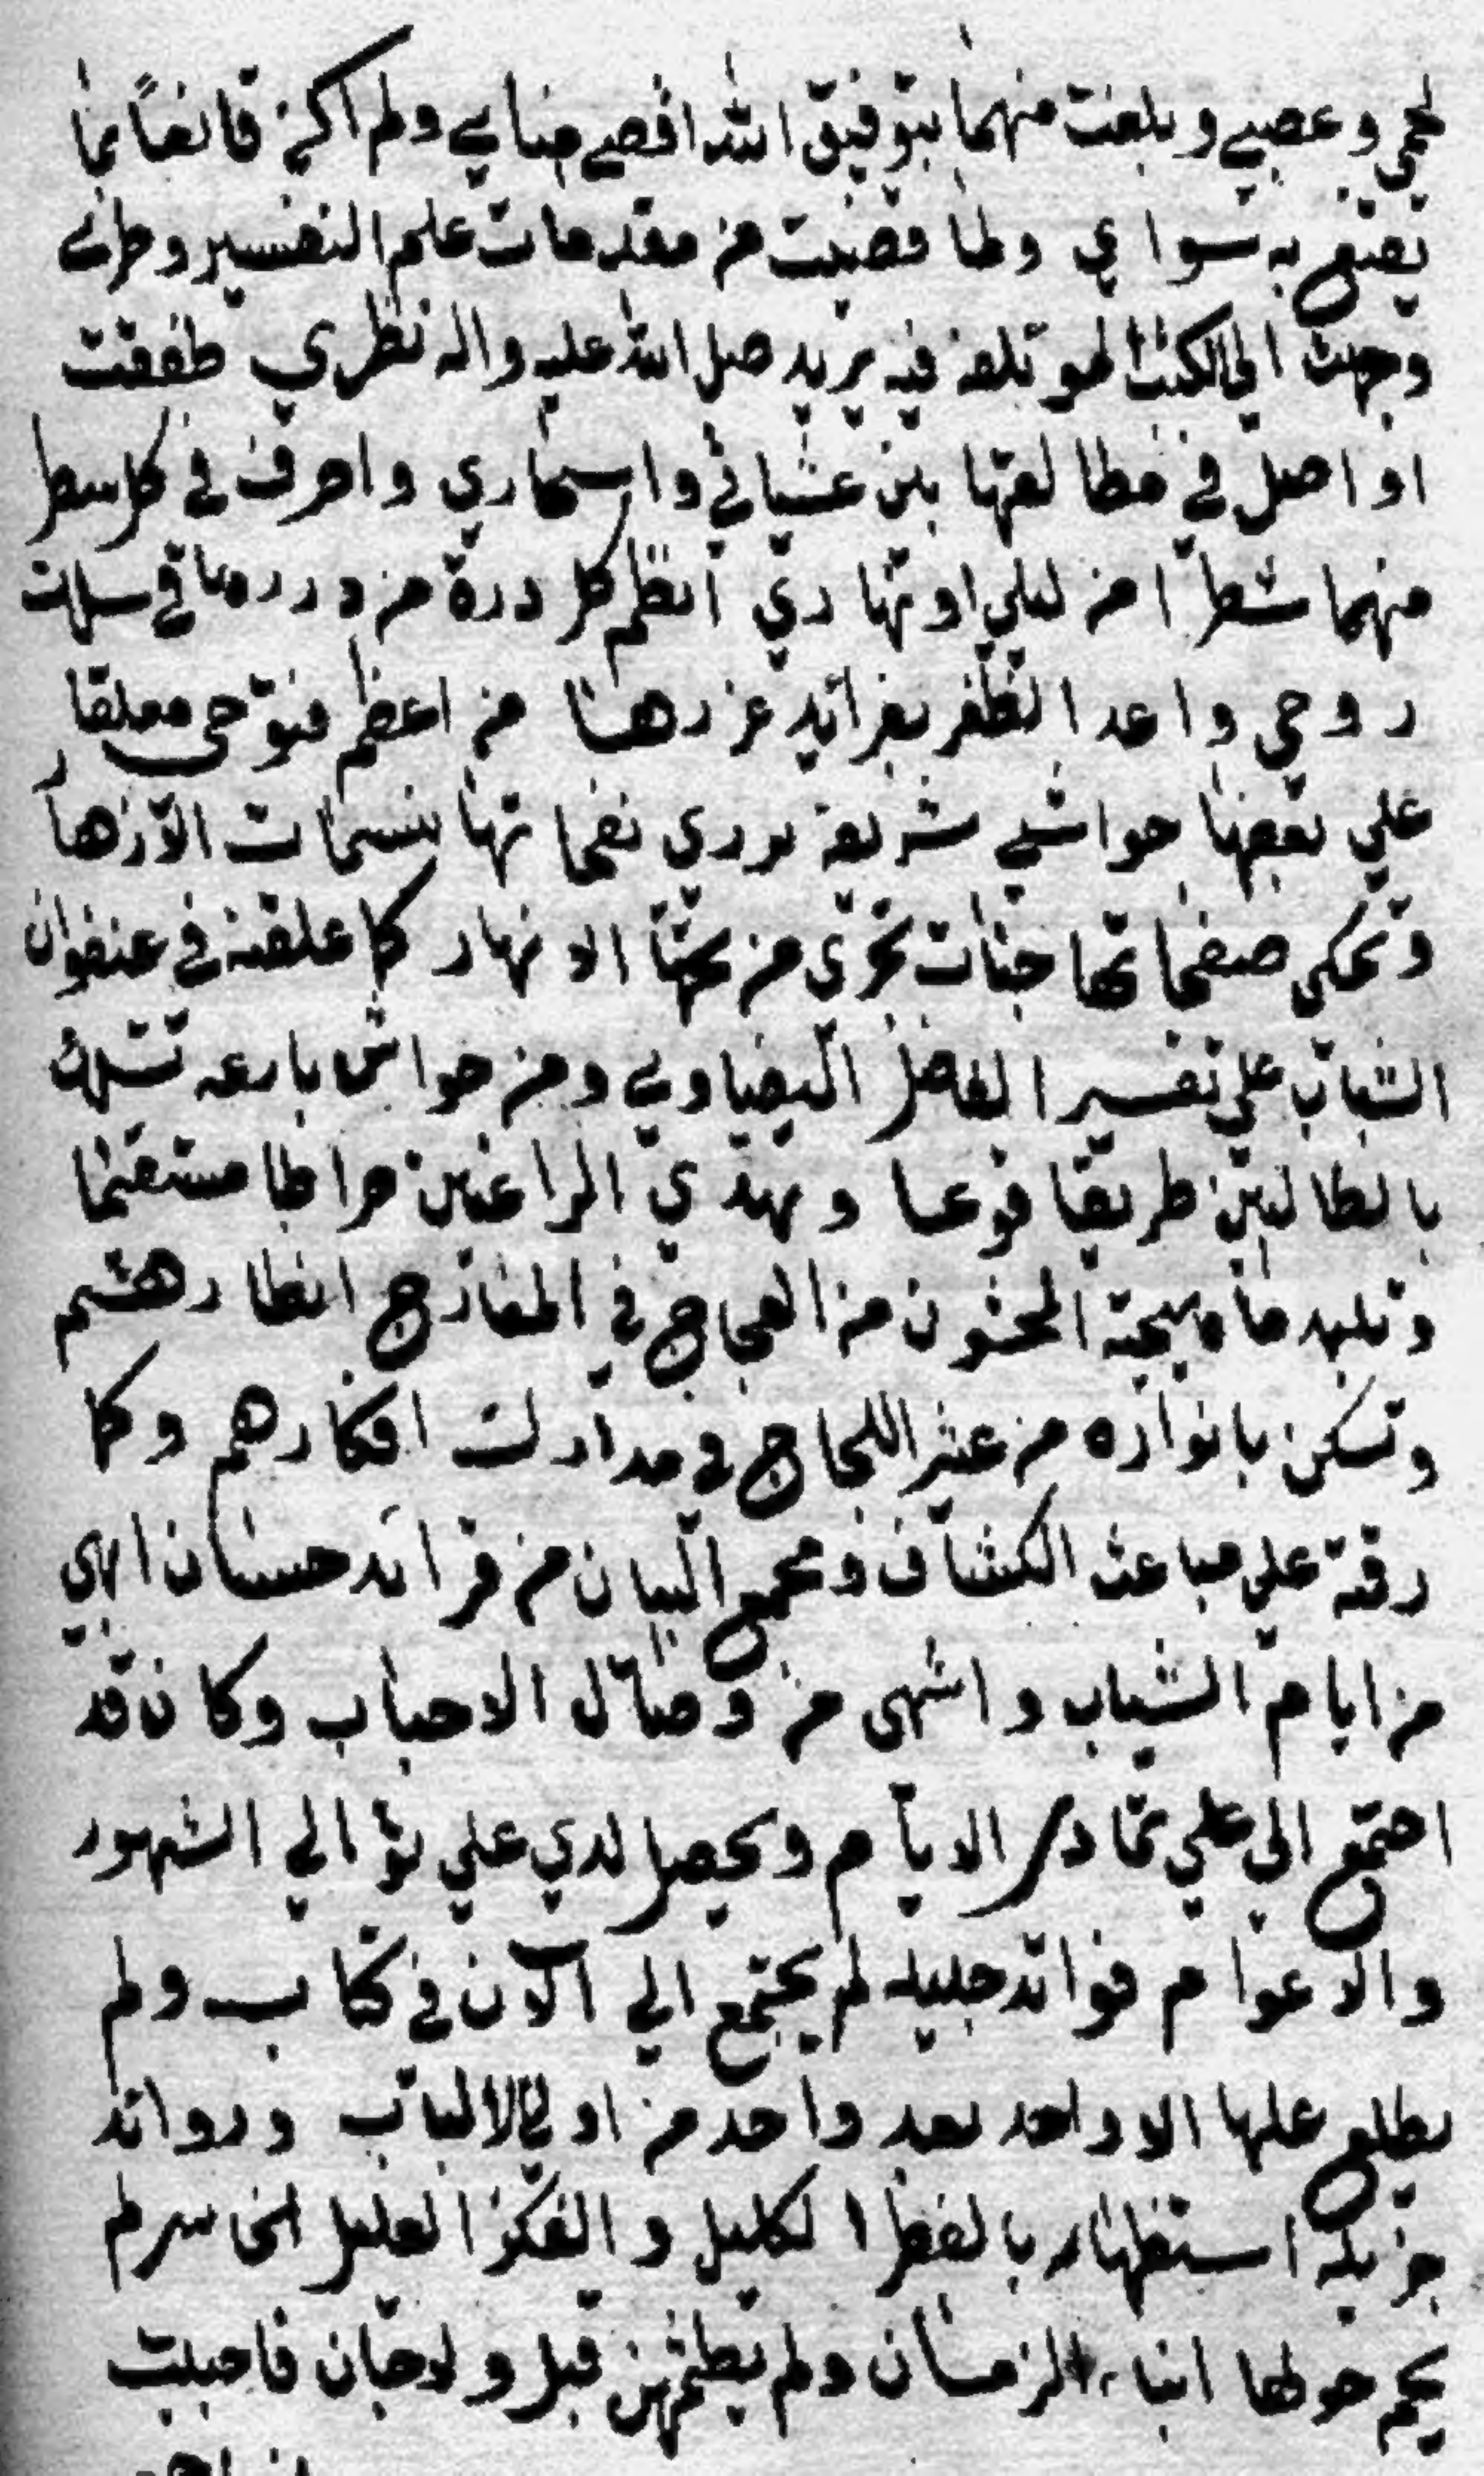 لحمي وعصبي وبلغت منهما بتوفيق الله اقصى مناي ولم اكن قانعاً بما
يقنع به سواي ولما قضيت من مقدمات علم التفسير وطري
وجهت الي الكتب نظري طفقت
اواصل في مطالعتها بين عشياتي واسحاري واصرف في كل سطر
منهما شطرا من ليلي او نهاري انظم كل درة من دررها في سلك
روحي واعد الظفر بفرائد غررها من اعظم فتوحي معلقا
علي بعضها حواشي شريفة يزري نفحاتها بنسمات الازهار
وتحكي صفحاتها جنات تجري من تحتها الانهار كما علقته في عنفوان
الشباب علي تفسير الفاضل البيضاوي ومن حواش بارعه تسلك
بالطالبين طريقا قويما وتهدي الراغبين صراطا مستقيما
وتلبد ما هيجته المحشون من العجاج في المعارج انظارهم
وتسكن بانواره من عثير اللجاج في مدارك افكارهم وكما
رقته علي مباحث الكشاف ومجمع البيان من فرائد حسان ابهي
من ايام الشباب واشهى من وصال الاحباب وكان قد
اجتمع الي علي تمادي الايام ويحصل لدي علي توالي الشهور
والاعوام فوائد جليله لم يجتمع الي الآن في كتاب ولم
يطلع عليها الا واحد بعد واحد من اولي الالباب وروائد
جزيله بالنظر الكليل والفكر العليل لم
يحم حولها ابناء الزمان ولم يطمثهن قبل ولا جان فاحببت